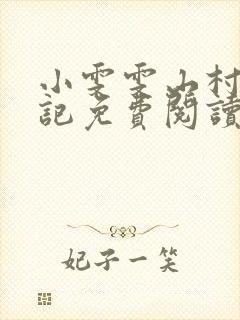 小雯雯山村
記免費閱讀
妃子一笑